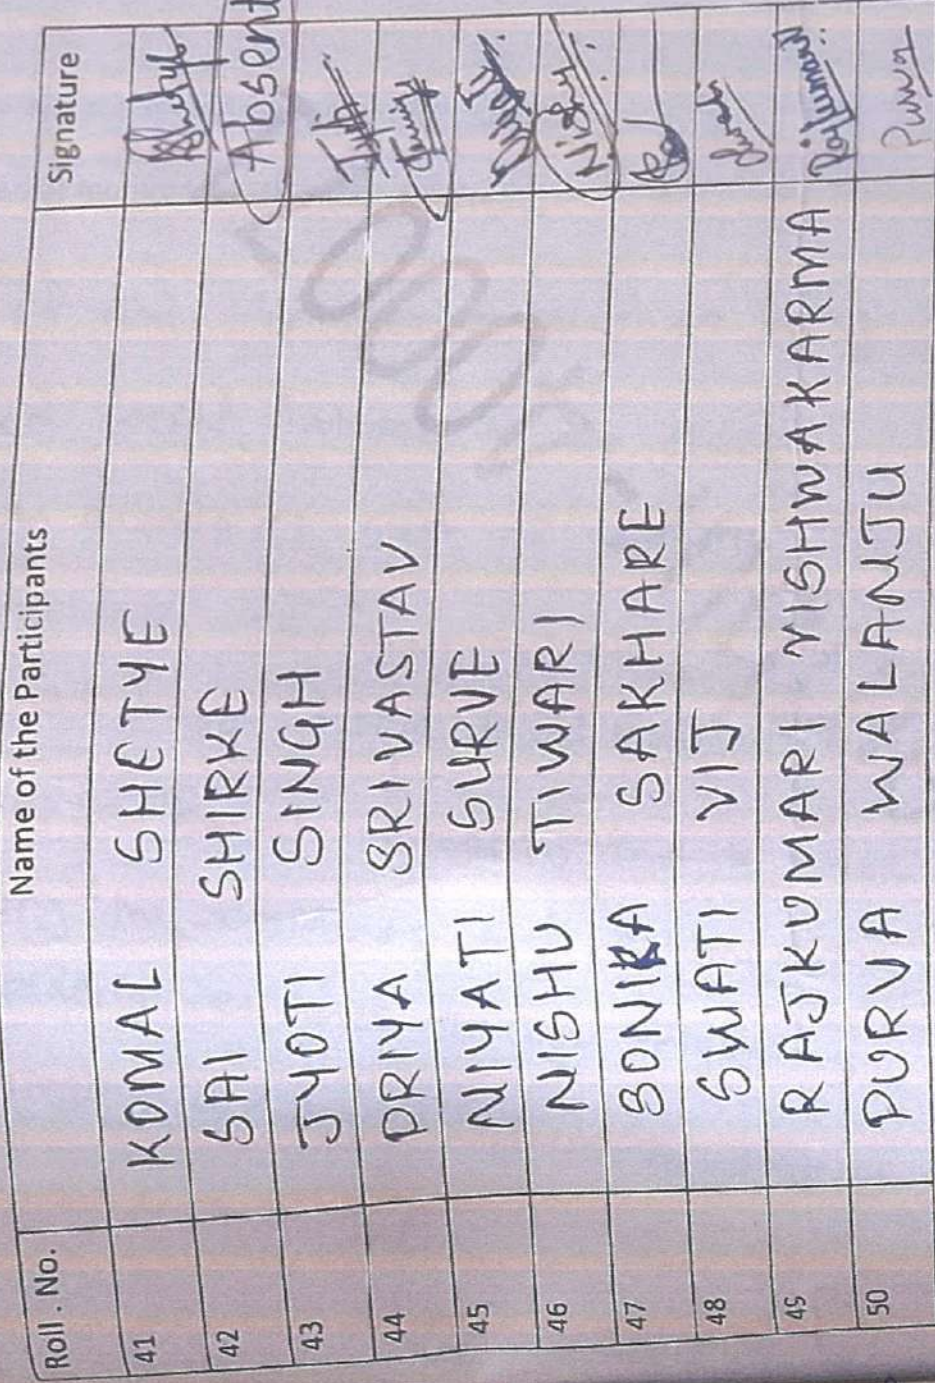 Roll . No. Name of the Participants Signature
41 KOMAL SHETYE
42 SAI SHIRKE Absent
43 JYOTI SINGH Jyoti
44 PRIYA SRIVASTAV
45 NIYATI SURVE
46 NISHU TIWARI Nishu
47 SONIKA SAKHARE
48 SWATI VIJ Swati
49 RAJKUMARI VISHWAKARMA Rajkumari
50 PURVA WALANJU Purva